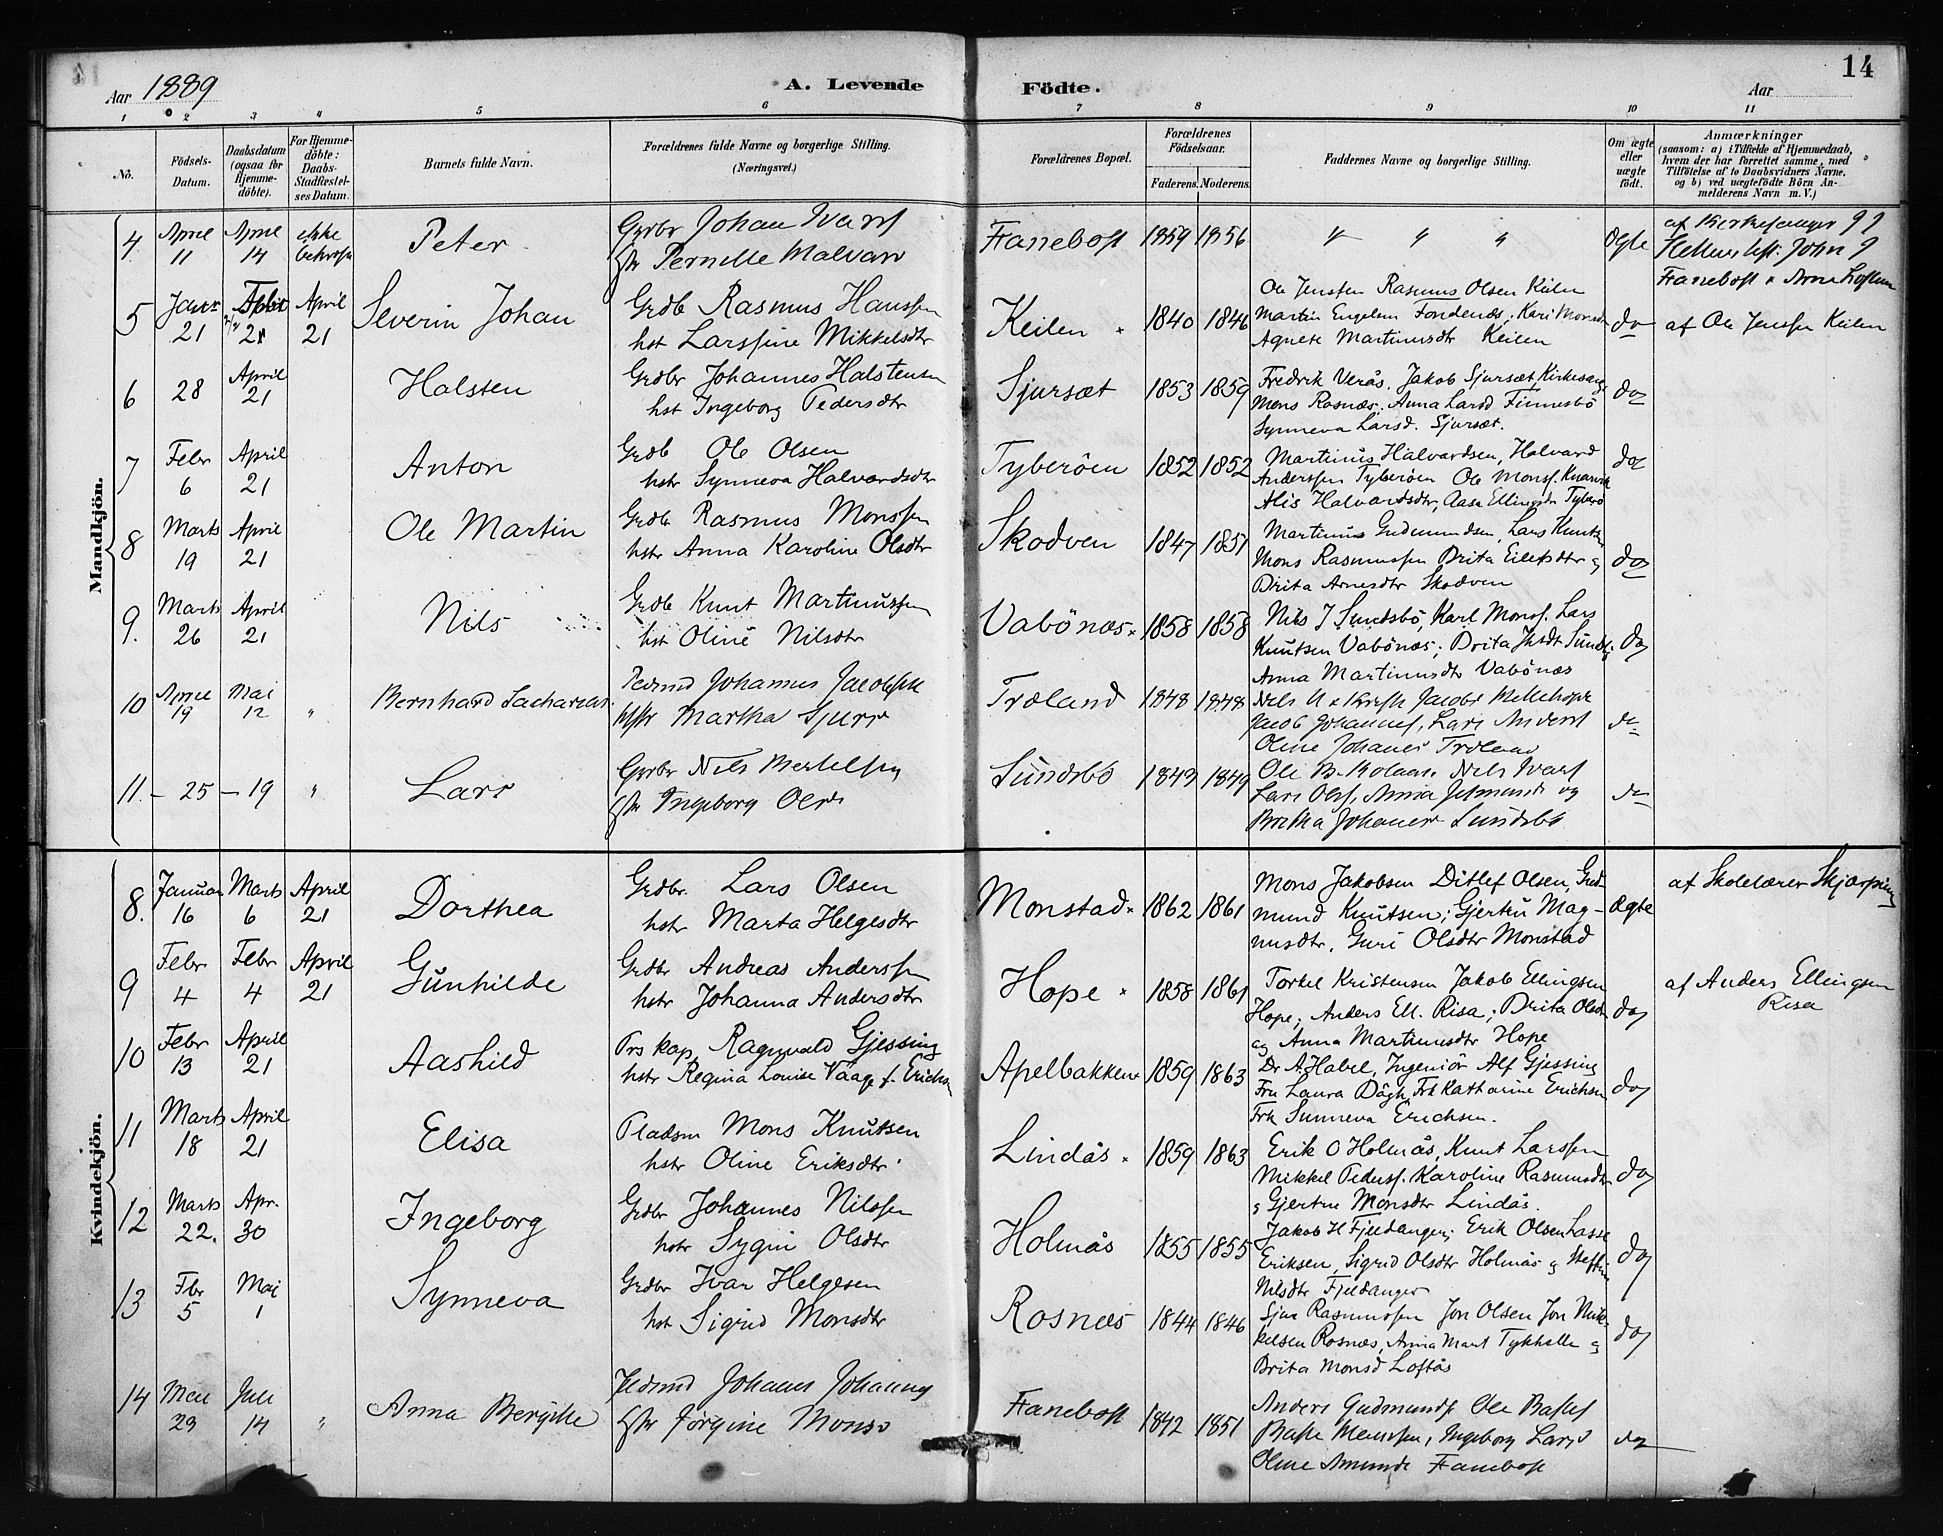 Aar 1889
A. Levende Födte.
Aar
14
1 2 3 4 5 6 7 8 9 10 11
No.
Födsels-Datum.
Daabsdatum (ogsaa for Hjemme-döbte).
For Hjemme-döbte: Daabs-Stadfæstel-ses Datum.
Barnets fulde Navn.
Forældrenes fulde Navne og borgerlige Stilling. (Næringsvei.)
Forældrenes Bopæl.
Forældrenes Födselsaar.
Faderens. Moderens.
Faddernes Navne og borgerlige Stilling.
Om ægte eller uægte födt.
Anmærkninger
(saasom: a) i Tilfælde af Hjemmedaab, hvem der har forrettet samme, med Tilföielse af to Daabsvidners Navne, og b) ved uægtefödte Börn An-melderens Navn m.V.)
Mandkjön.
4. April 11 April 14 ikke Peter Johan Pernille 1859 1856 " " " Ogte
5 Janr 21 April 21 Severin Johan Grdb Rasmus Hanssen
hst Larssine Mikkelsdtr Keilen 1840 1846 Ole Jenssen Rasmus Olsen Keilen
Martin Engelsen Fondenæs, Kari Monsdr
Agnete Martinusdtr Keilen do af Ole Jenssen Keilen
6 28 April 21 Halsten Grdbr Johannes Halstensen
hst Ingeborg Pedersdtr Sjursæt 1853 1859 Fredrik Verås, Jakob Sjursæt, Kirkesang
Mons Rosnæs, Anna Larsd Finnesbö
Synneva Larsd. Sjursæt. do
7 Febr 6 April 21 Anton Grdb Ole Olsen
hstr Synneva Halvardsdtr Tyberöen 1852 1852 Martinus Halvardsen, Halvard
Anderssen Tyberöen Ole Monss. Knarvik
Alis Halvardsdtr, Aasa Ellingsdr Tyberö do
8 Marts 19 April 21 Ole Martin Grdb Rasmus Monssen
hstr Anna Karoline Olsdtr Skodven 1847 1851 Martinus Gudmundsen, Lars Knutsen
Mons Rasmussen Brita Eilefsdtr og
Brita Arnesdtr Skodven do
9. Marts 26 April 21 Nils Grdb Knut Martinussen
hst Oline Nilsdtr Vabönæs 1858 1858 Nils J Sundsbö, Karl Monss. Lars
Knutsen Vabönæs; Brita Sundsb
Anna Martinusdtr Vabönæs do
10 April 19 Mai 12 " Bernhard Sacharias Johannes Jacobsen
Martha Træland 1848 1848 Nils
Jacob Johannes, Lars
Oline Johanes
11. – 25 – 19 " Lars Nils Bertelsen
Ingeborg Ols Sundsbö 1849 1849 Ole Nils Ivars
Lars Olss, Anna og
Johanes Sundsbö
Kvindekjön.
8. Januar 16 Marts 6 April 21 Dorthea Grdbr. Lars Olsen
hstr Marta Helgesdtr Monstad 1862 1861 Mons Jakobsen Ditlef Olsen, Gud-
mund Knutsen; Gjertru Mag-
nusdtr, Guri Olsdtr Monstad Ægte af Skolelærer Skjærping
9 Febr 4 Febr 4 April 21 Gunhilde Grdbr Andreas Anderssen
hstr Johanna Andersdtr Hope 1858 1861 Torkel Kristensen Jakob Ellingsen
Hope; Anders Ell. Risa; Brita Olsdr
og Anna Martinusdtr Hope do af Anders Ellingsen Risa
10 Febr 13 April 21 Aashild Prs kap, Ragnvald Gjessing
hstr Regina Louise Vaage f. Erichsen Apelbakken 1859 1863 Dr A. Habel, Ingeniör Alf Gjessing
Fru Laura Dågh, Frk Katharine Erichsen
Frk Sunneva Erichsen. do
11 Marts 18 April 21 Elisa Pladsm Mons Knutsen
hstr Oline Eriksdtr Lindås 1859 1863 Erik O Holmås, Knut Larssen
Mikkel Pederss. Karoline Rasmusdtr
Gjertru Monsdtr Lindås. do
12 Marts 22. Apr. 30 Ingeborg Grdbr Johannes Nilssen
hstr Sygni Olsdtr Holmås 1855 1855 Jakob H Fjeldanger; Erik Olsen Lasse
Eriksen, Sigrid Olsdtr Holmås og Steffin
Nilsdtr Fjeldanger do
13 Fbr 5 Mai 1 Synneva Grdbr Ivar Helgesen
hst Sigrid Monsdtr Rosnæs 1844 1846 Sjur Rasmussen Jon Olsen Jon Mik-
kelsen Rosnæs, Anna Mart Tykhelle og
Brita Monsd Loftås do
14 Mai 23 Juli 14 " Anna Johanes Johannes
Jörgine Monsd Fanebost 1842 1851 Anders Gudmunds Ole
Ingeborg Larsd
Oline Fanebost